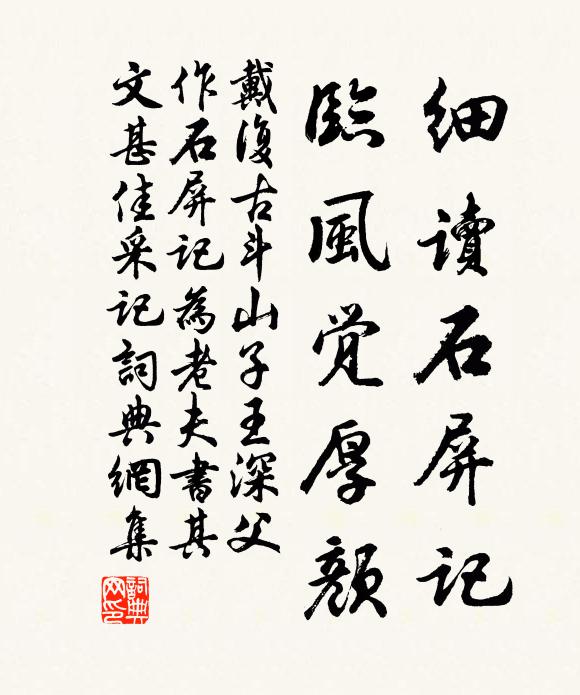 细讀石屏記
臨風覚厚顏
戴復古斗山子王深父
作石屏記為老夫書其
文甚佳采記詞典網集
詞典網印